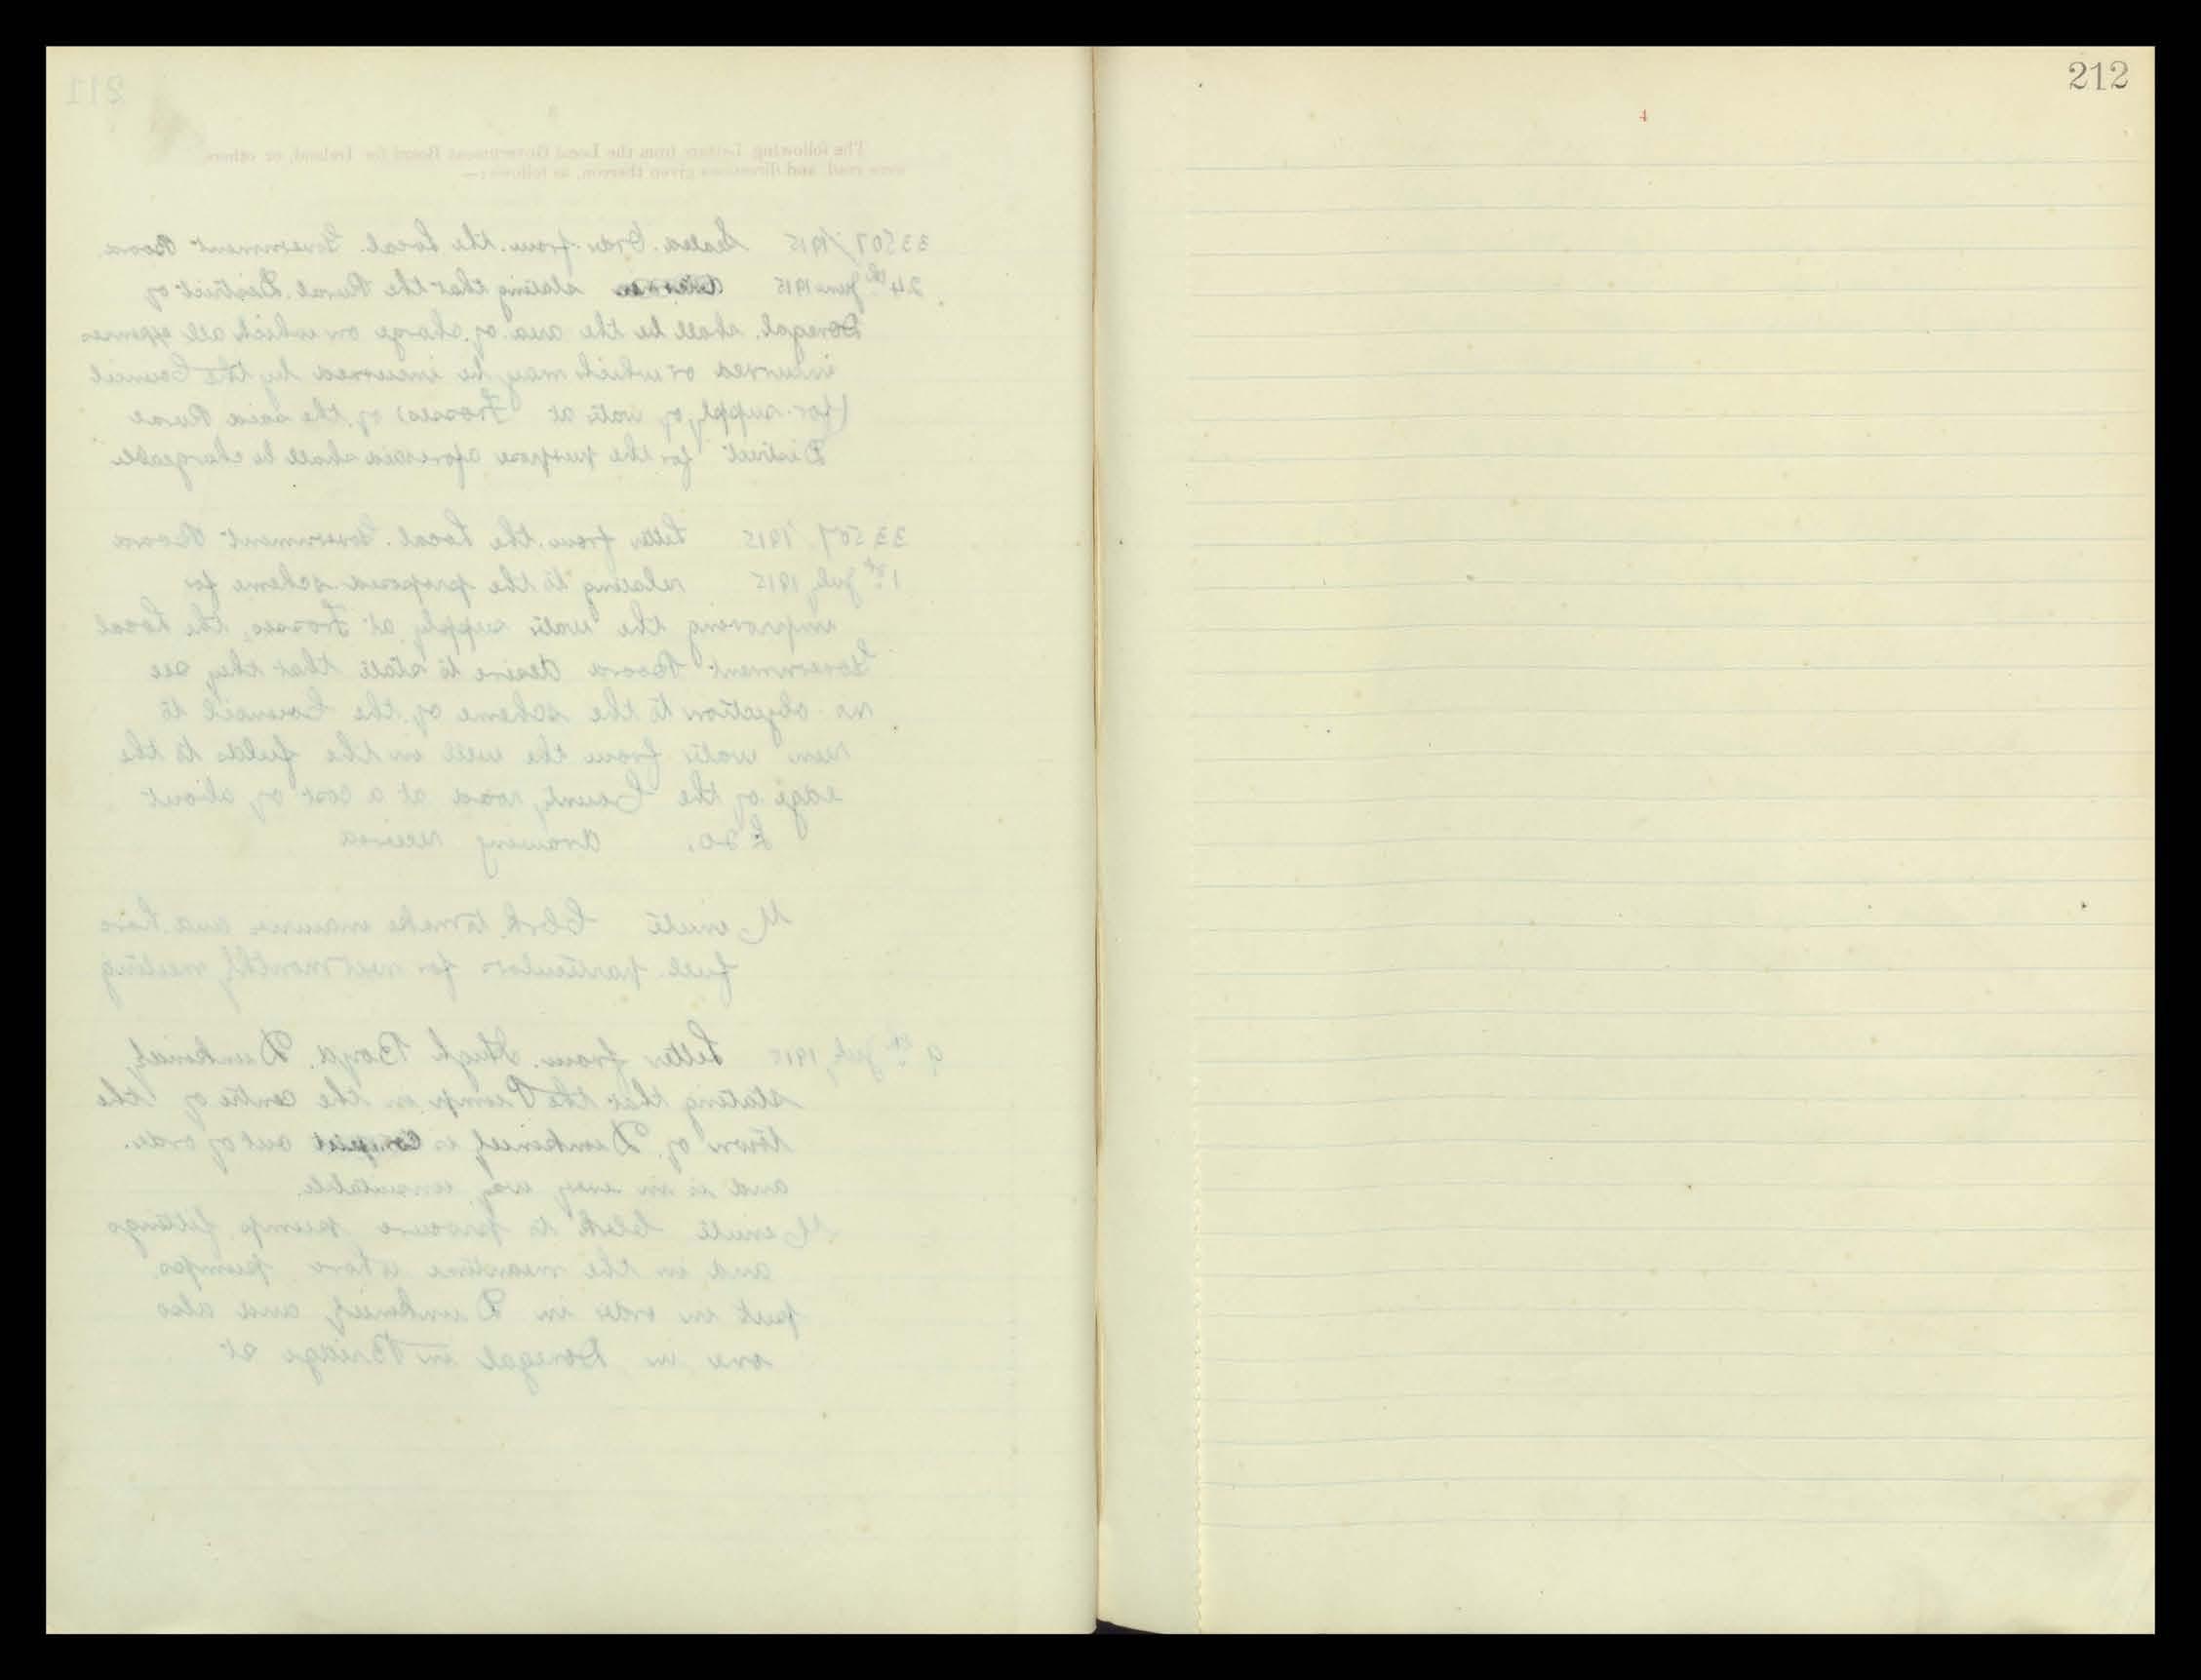 211
3
The following Letters from the Local Government Board for Ireland, or others,
were read, and directions given thereon, as follows:—
33507/1915 Sealed Order from the Local Government Board
24th June 1915 stating that the Rural District of
Donegal shall be the area of charge on which all expenses
incurred or which may be incurred by the Council
(for supply of water at Frosses) of the said Rural
District for the purpose aforesaid shall be chargeable
33507/1915 Letter from the Local Government Board
1st July 1915 relating to the proposed scheme for
improving the water supply at Frosses, the Local
Government Board desire to state that they see
no objection to the scheme of the Council to
run water from the well in the fields to the
edge of the County road at a cost of about
£20. drawing received
Minute Clerk to make inquiries and have
full particulars for next monthly meeting
9th July 1915 Letter from Hugh Boyd, Dunkineely
stating that the Pump in the centre of the
town of Dunkineely is out of order
and is in every way unsuitable.
Minute Clerk to procure pump fittings
and in the meantime where pumps
put in order in Dunkineely and also
one in Donegal in Bridge st
212
4